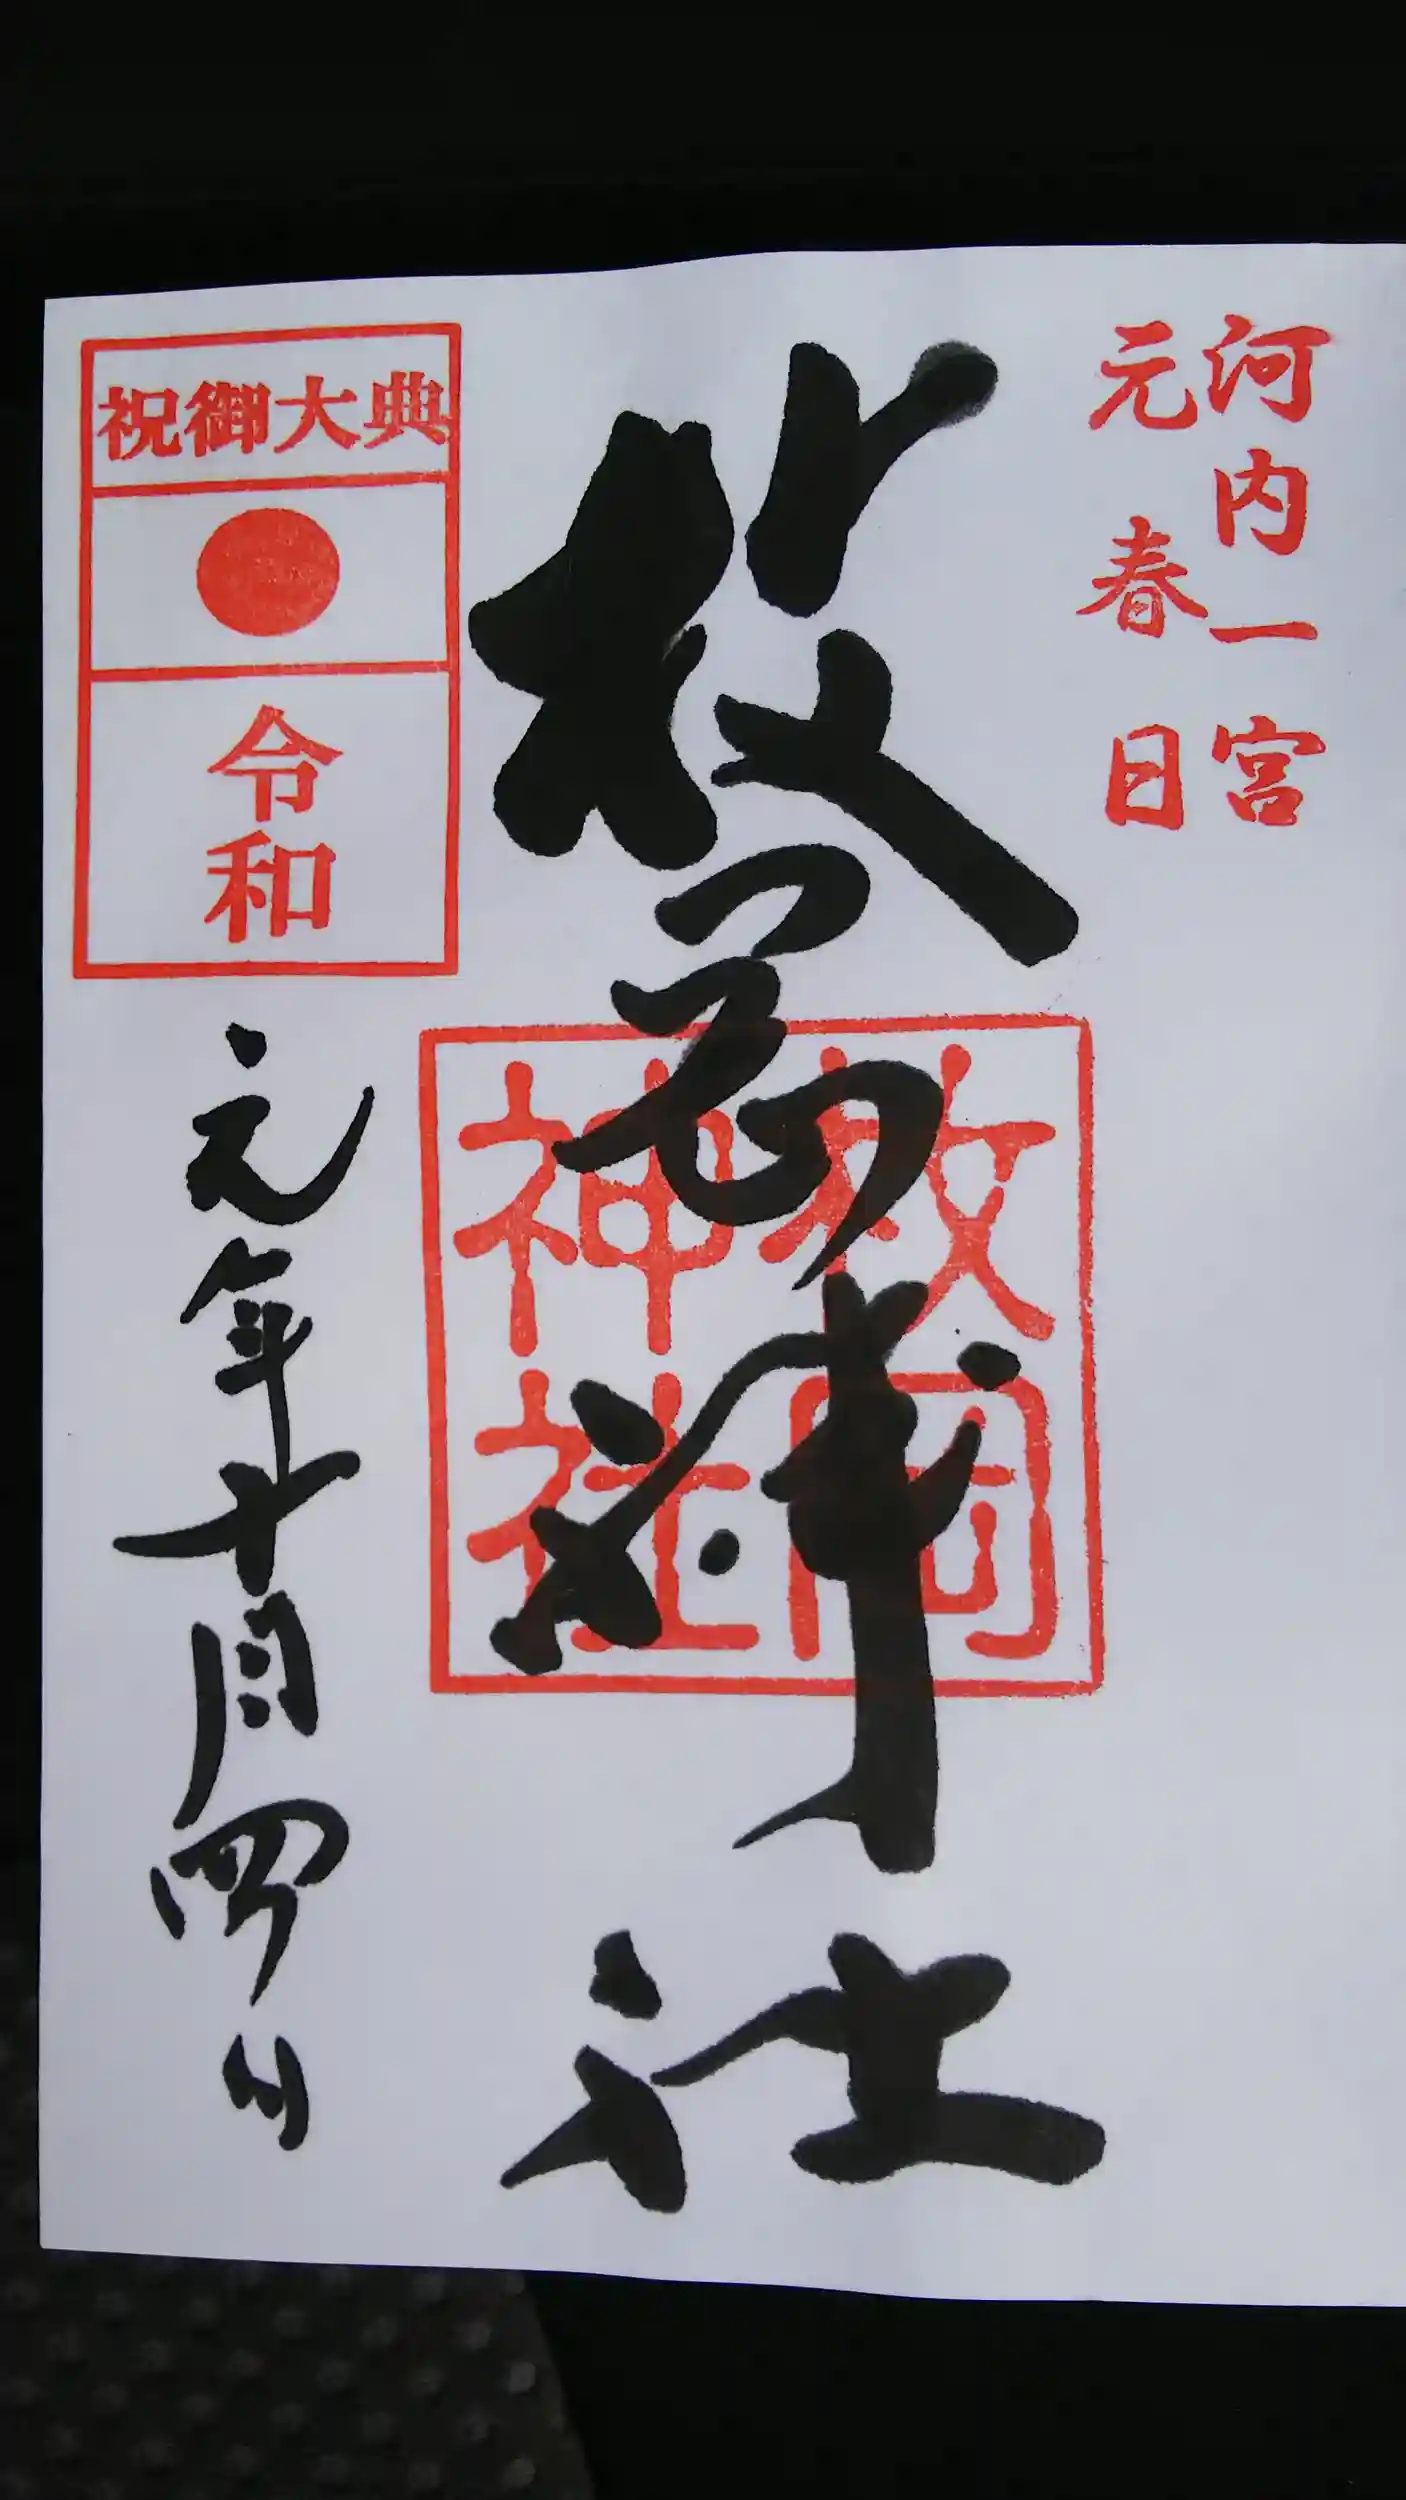 河内一宮
元春日
枚岡神社
枚岡
神社
祝御大典
令和
元年十月四日